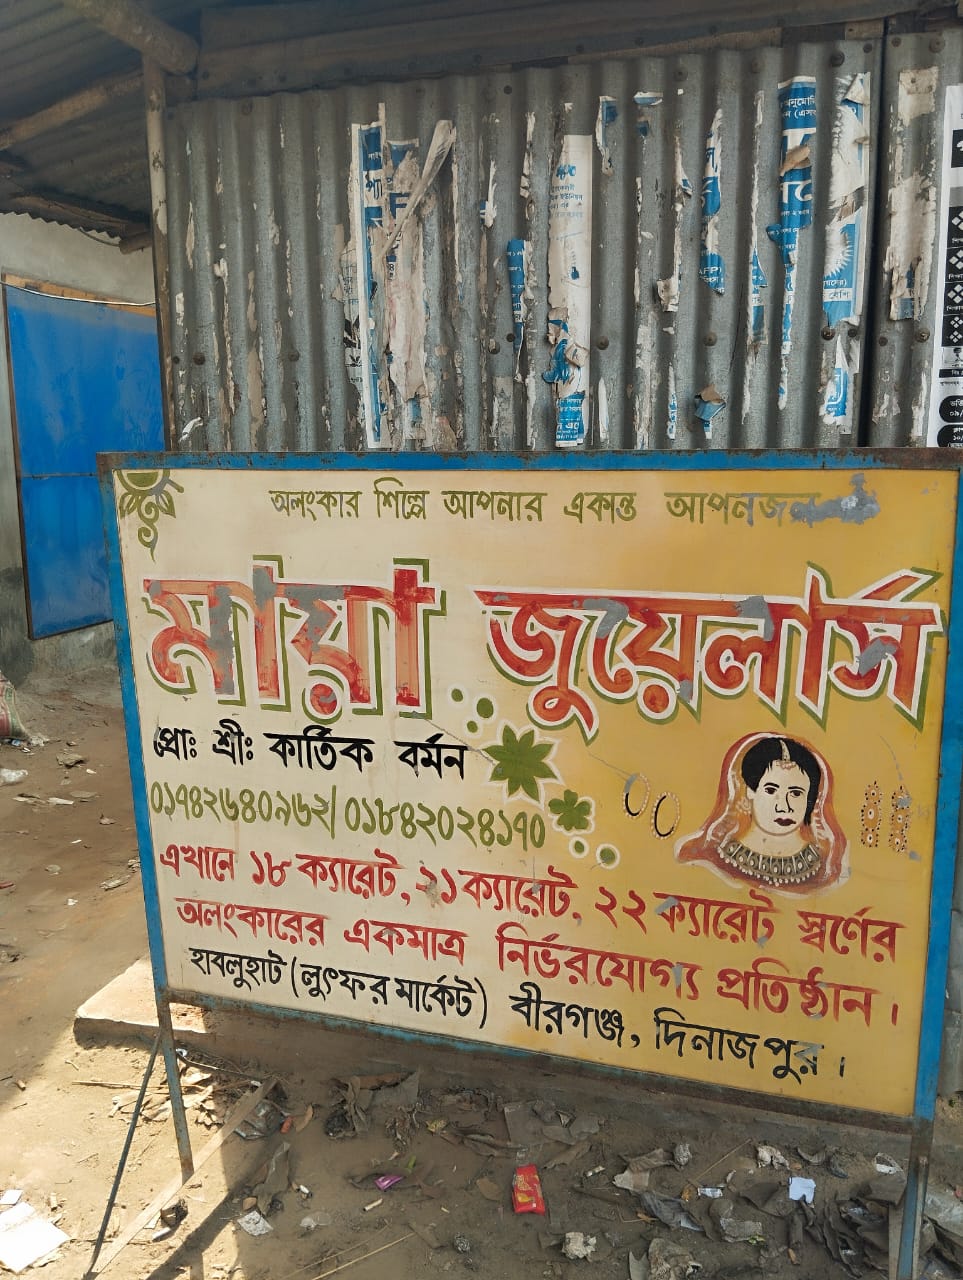 অলংকার শিল্পে আপনার একান্ত আপনজন
মায়া জুয়েলার্স
প্রোঃ শ্রীঃ কার্তিক বর্মন
০১৭৪২৬৪০৯৬২/ ০১৮৪২০২৪১৭০
এখানে ১৮ ক্যারেট, ২১ ক্যারেট, ২২ ক্যারেট স্বর্ণের
অলংকারের একমাত্র নির্ভরযোগ্য প্রতিষ্ঠান।
হাবলুহাট (লুৎফর মার্কেট) বীরগঞ্জ, দিনাজপুর।